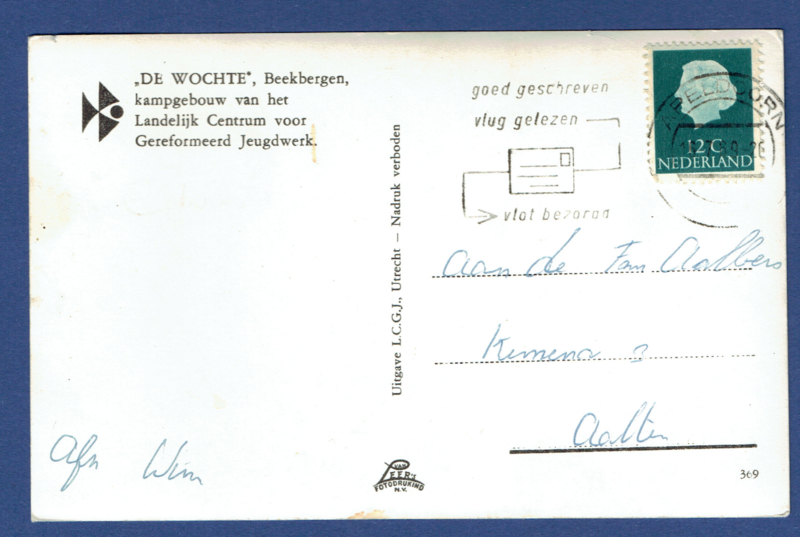 „DE WOCHTE", Beekbergen,
kampgebouw van het
Landelijk Centrum voor
Gereformeerd Jeugdwerk.
goed geschreven
vlug gelezen
vlot bezorgd
APELDOORN
12C
NEDERLAND
Uitgave L.C.G.J., Utrecht – Nadruk verboden
Aan de Fam Aalbers
Kemena 3
Aalten
Afz Wim
VAN
LEER'S
FOTODRUKIND
N.V.
369